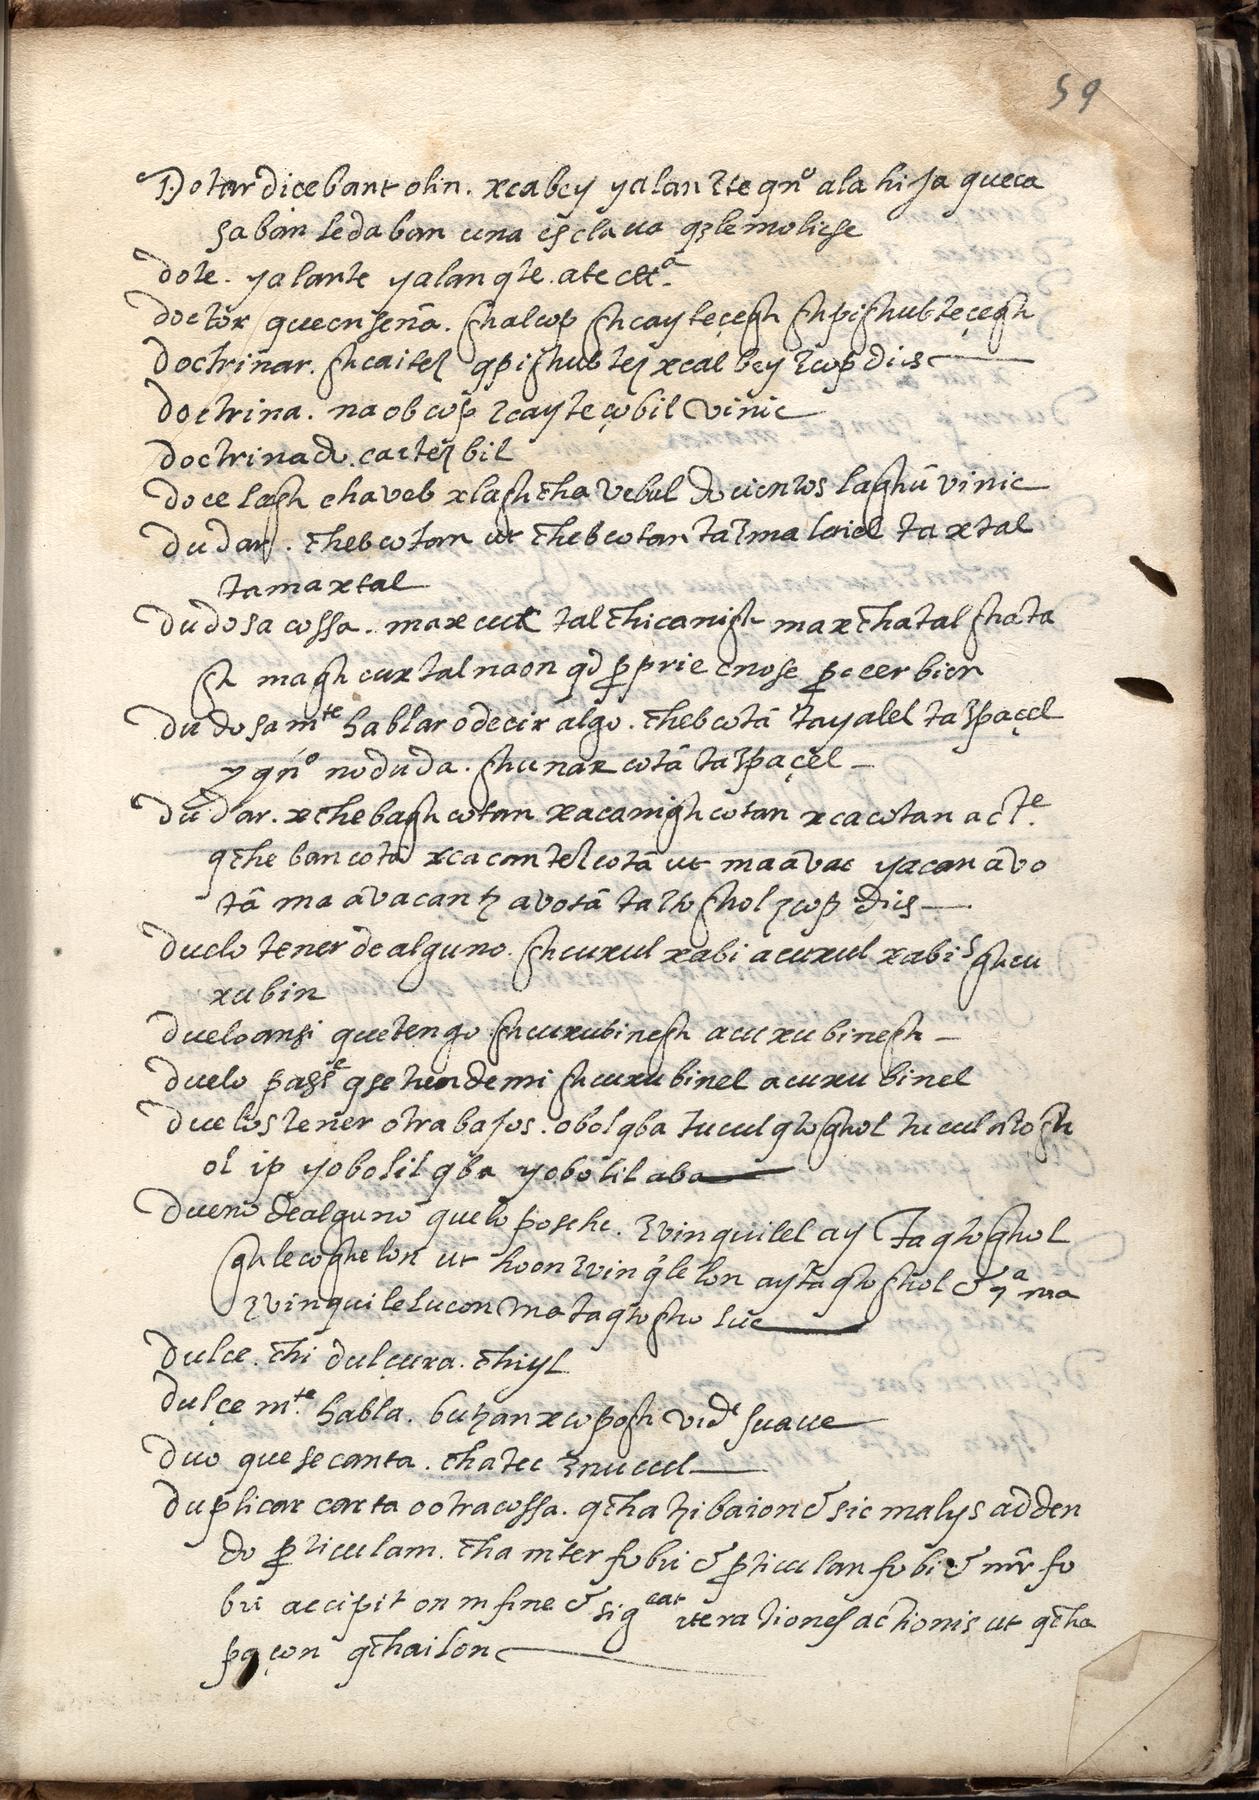 59
Dotar dicebant olim. xcabey yalan ɀte qnº ala hija que ca
saban le daban una esclava qȝ le moliese
dote. yalante yalan qte. ate ettª.
doctor que enseña. ghalcop ghcayteçegh ghpighubteçegh
doctrinar. ghcaiteɀ qpighubteɀ xcal bey ɀcop dios
doctrina. naobcop ɀcayteçobil vinic
doctrinado. caiteɀ bil
doce lagh chaveb xlaghcħa vebul docientos laghu͂ vinic
dudar. cħebcotan ut cħebcotan ta ɀma loriel ta xtal
tamaxtal
dudosa cossa. maxcuc tal cħicanigh maxcħatal ghata
gh magh cux tal naon qd p̱prie enose p̱ceer bien
dudosamte hablar o decir algo. cħebcotā tayalel taɀpaçel
y qnº no duda. ghunax cotā taɀpaçel
dudar. xcħebagh cotan xacanigh cotan xcacotan actte.
qcħe ban cotā xcacanteɀ cotā ut maāvac yacan āvo
tā ma āvacanɀ avotā taɀtoghol ɀcop dios
duelo tener de alguno. ghcuxul xabi acuxul xabi ghcu
xubin
duelo ansi que tengo ghcuxubinegh acuxubinegh
duelo passe q se tien de mi ghcuxubinel acuxubinel
duelos tener o trabajos. obol qba tucul qtoghol tucul atogh
ol ip yobolil qba yobolil aba
dueño de alguno que lo posehe. ɀvinquilel ay ta qtoghol
ghlecoghelon ut hoon ɀvinqlelon ayta qtoghol & ɀª ma
ɀvinquilelucon ma taqtogholuc
dulce. cħi dulçura. cħiyl
dulçemte. habla. buɀanxcopogh vide suave
duo que se canta. cħatec ɀnucul
duplicar carta o otra cossa. qcħa ɀibaion & sic m alys adden
do p̱ticulam. cħa mter fo bu & p̱ticulan fo bi & mr̄ fo
bu accipit on in fine & sigeat iterationes actionis ut qcħa
paçon qcħailon